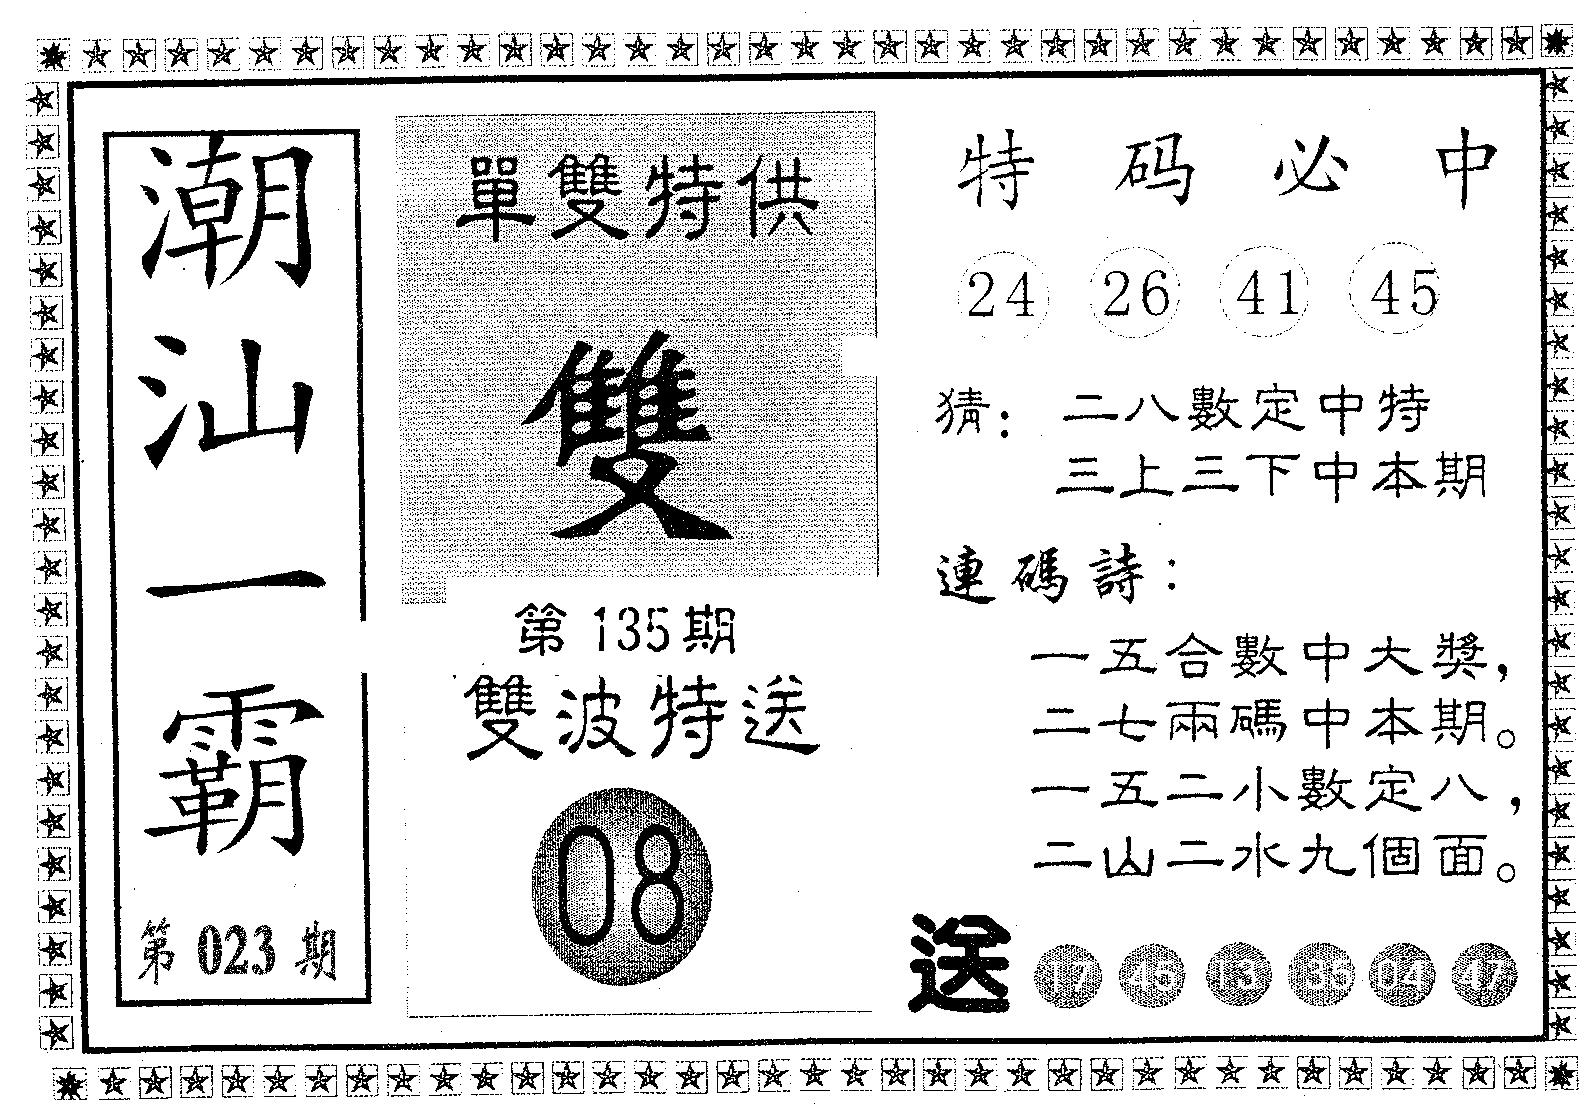 潮汕一霸
第023期
單雙特供
雙
第135期
雙波特送
08
特码必中
24 26 41 45
猜：二八數定中特
三上三下中本期
連碼詩：
一五合數中大獎，
二七兩碼中本期。
一五二小數定八，
二山二水九個面。
送 17 45 13 36 04 47